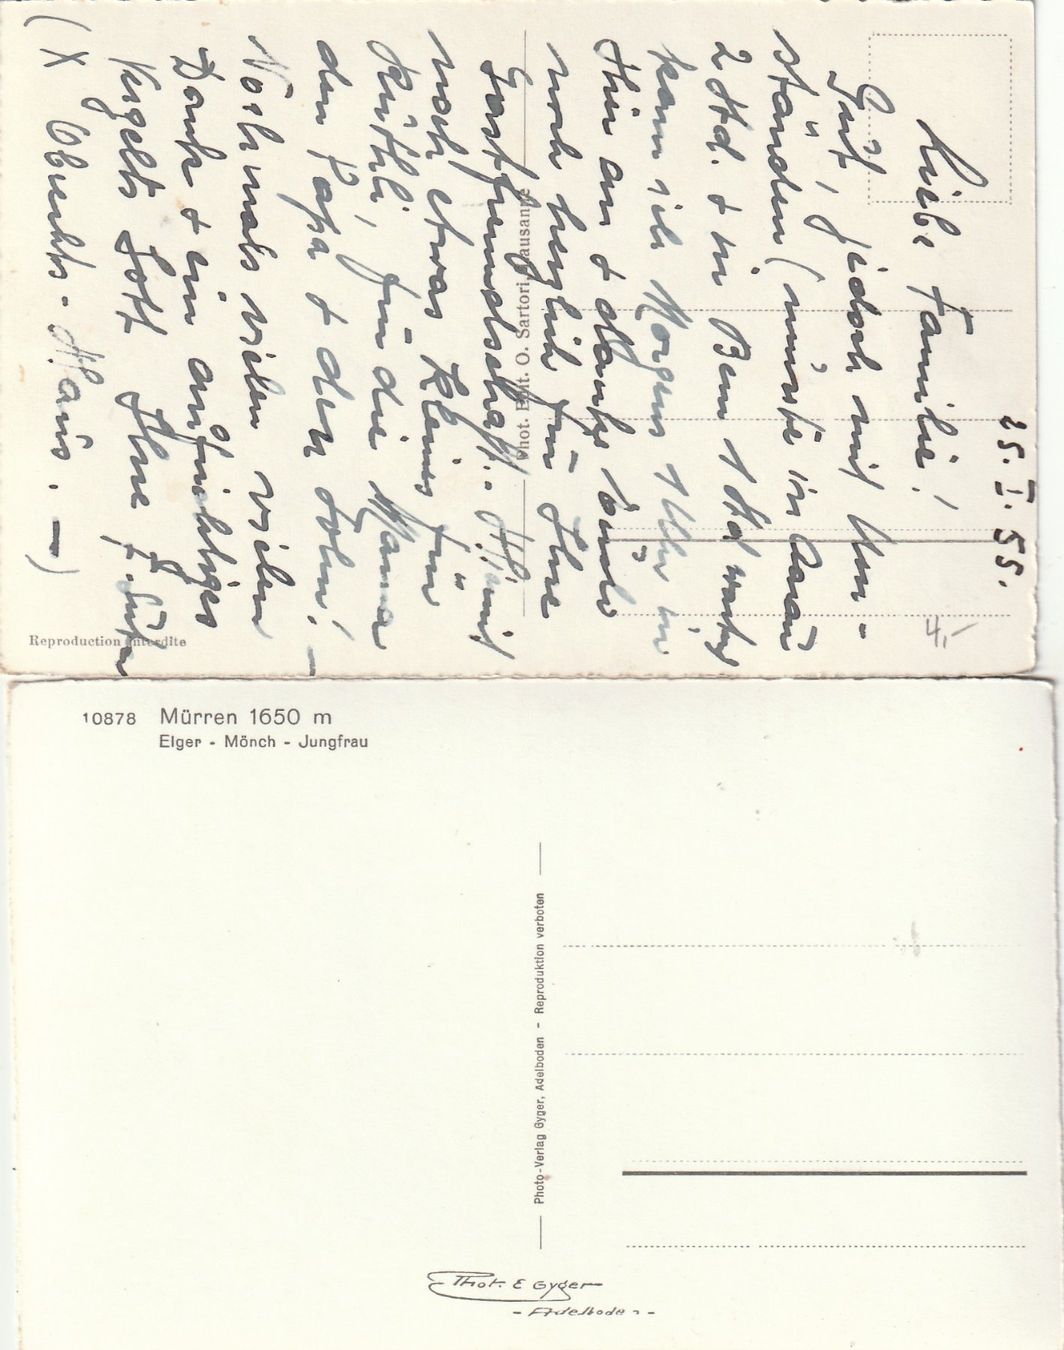 25. I. 55.
Liebe Familie!
Gut, jedoch mit Um-
ständen (musste in Aarau
2 Std. + in Bern 1 Std warten
kam ich Morgens 1 Uhr in
Thun an + danke
noch herzlich für Ihre
Gastfreundschaft.
noch etwas kleines für
Rüthli, für die Mama
den Papa + den Sohn!
Nochmals vielen vielen
Dank + ein aufrichtiges
Vergelts Gott Ihre
Phot. Edit. O. Sartori, Lausanne
Reproduction interdite
4.-
10878 Mürren 1650 m
Eiger - Mönch - Jungfrau
Photo-Verlag Gyger, Adelboden - Reproduktion verboten
Phot. E Gyger
- Adelboden -